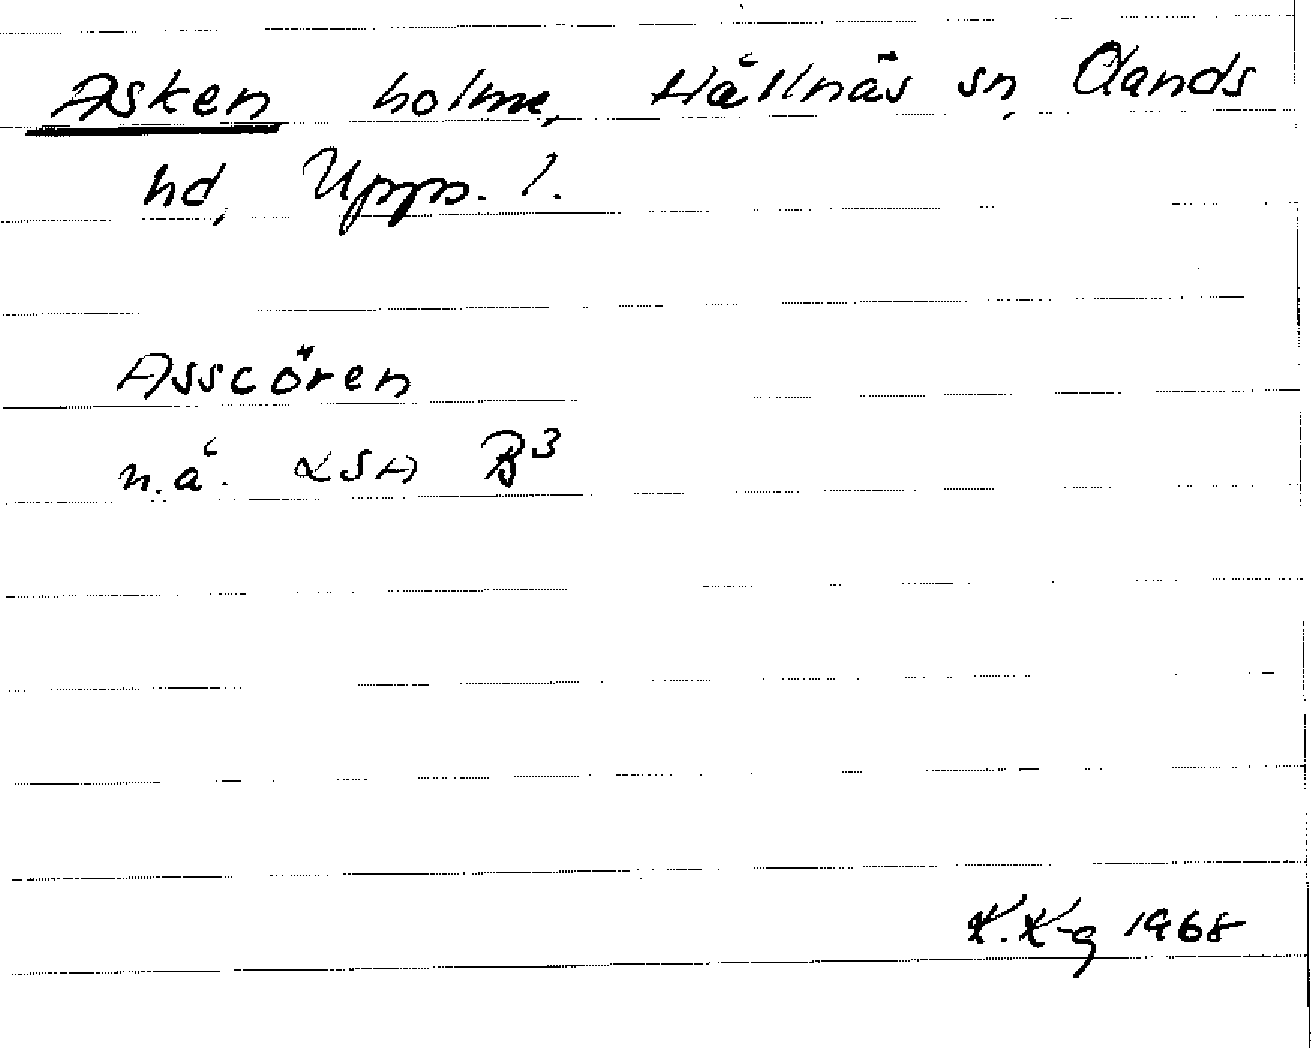 Asken holme, Hållnäs sn, Olands
hd, Upps. l.
Asscören
n.å. LSA B3
K.K-g 1968